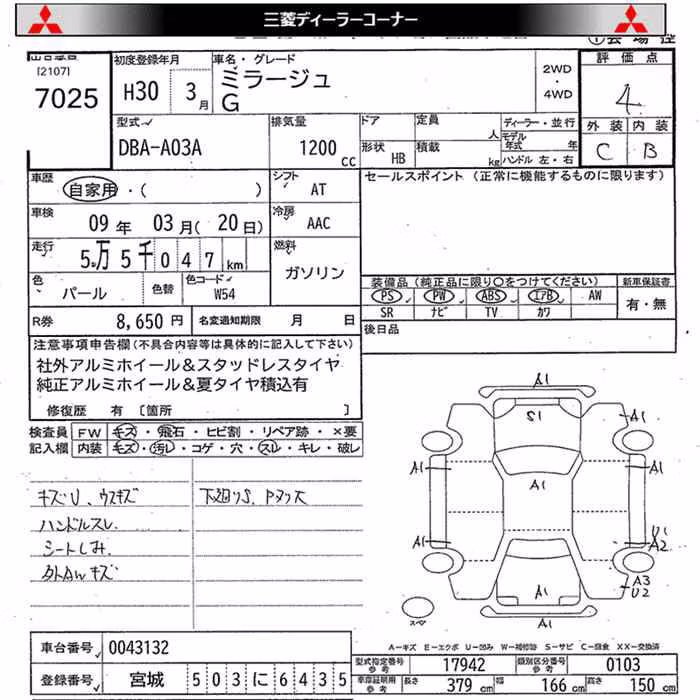 三菱ディーラーコーナー
[2107]
7025
初度登録年月
H30 3月
車名・グレード
ミラージュ
G
2WD
・
4WD
評価点
4
外装 内装
C B
型式
DBA-A03A
排気量
1200 cc
ドア
定員
人
形状 HB
積載
kg
ディーラー・並行
モデル年式 年
ハンドル 左・右
車歴
自家用・( )
シフト
AT
セールスポイント (正常に機能するものに限ります)
車検
09年 03月(20日)
冷房
AAC
走行
5万5千047km
燃料
ガソリン
色
パール
色替
色コード
W54
装備品(純正品に限り〇をつけてください)
PS PW ABS エアB AW
SR ナビ TV カワ
新車保証書
有・無
R券 8,650円
名変通知期限 月 日
後日品
注意事項申告欄(不具合内容等は具体的に記入して下さい)
社外アルミホイール&スタッドレスタイヤ
純正アルミホイール&夏タイヤ積込有
修復歴 有 [箇所 ]
検査員 FW キズ・飛石・ヒビ割・リペア跡・×要
記入欄 内装 キズ・汚レ・コゲ・穴・スレ・キレ・破レ
キズU、ウスキズ
ハンドルスレ
シートしみ
外AWキズ
下廻りS、Pタッチ
A1
A1
A1
A1
A1
A1
U1
A2
A1
A3
U2
A1
A1
スペア
A−キズ E−エクボ U−凹み W−補修跡 S−サビ C−腐食 XX−交換済
車台番号 0043132
登録番号 宮城 503に6435
型式指定番号 参考 17942
類別区分番号 参考 0103
車庫証明用 参考 長さ 379cm 幅 166cm 高さ 150cm